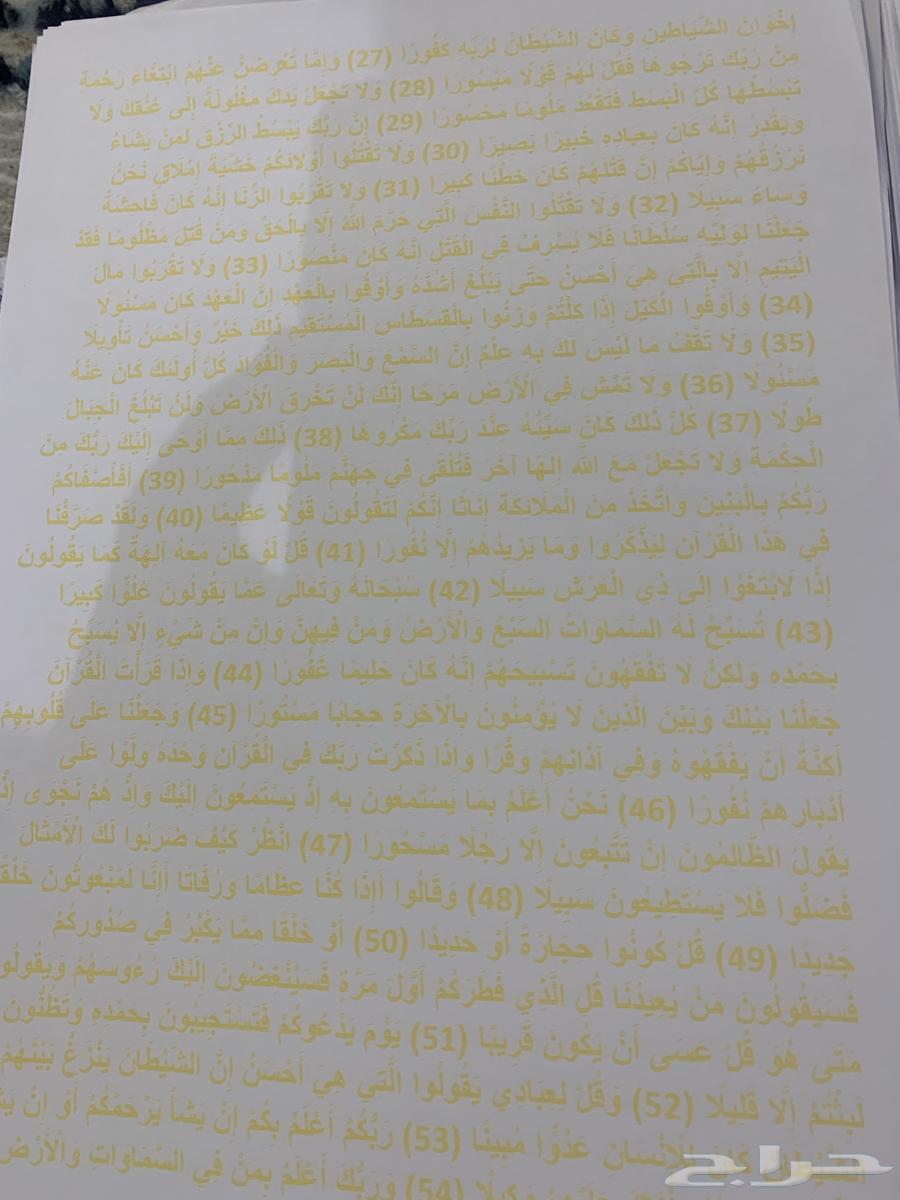 إِخْوَانَ الشَّيَاطِينِ وَكَانَ الشَّيْطَانُ لِرَبِّهِ كَفُورًا (27) وَإِمَّا تُعْرِضَنَّ عَنْهُمُ ابْتِغَاءَ رَحْمَةٍ
مِنْ رَبِّكَ تَرْجُوهَا فَقُلْ لَهُمْ قَوْلًا مَيْسُورًا (28) وَلَا تَجْعَلْ يَدَكَ مَغْلُولَةً إِلَى عُنُقِكَ وَلَا
تَبْسُطْهَا كُلَّ الْبَسْطِ فَتَقْعُدَ مَلُومًا مَحْسُورًا (29) إِنَّ رَبَّكَ يَبْسُطُ الرِّزْقَ لِمَنْ يَشَاءُ
وَيَقْدِرُ إِنَّهُ كَانَ بِعِبَادِهِ خَبِيرًا بَصِيرًا (30) وَلَا تَقْتُلُوا أَوْلَادَكُمْ خَشْيَةَ إِمْلَاقٍ نَحْنُ
نَرْزُقُهُمْ وَإِيَّاكُمْ إِنَّ قَتْلَهُمْ كَانَ خِطْئًا كَبِيرًا (31) وَلَا تَقْرَبُوا الزِّنَا إِنَّهُ كَانَ فَاحِشَةً
وَسَاءَ سَبِيلًا (32) وَلَا تَقْتُلُوا النَّفْسَ الَّتِي حَرَّمَ اللَّهُ إِلَّا بِالْحَقِّ وَمَنْ قُتِلَ مَظْلُومًا فَقَدْ
جَعَلْنَا لِوَلِيِّهِ سُلْطَانًا فَلَا يُسْرِفْ فِي الْقَتْلِ إِنَّهُ كَانَ مَنْصُورًا (33) وَلَا تَقْرَبُوا مَالَ
الْيَتِيمِ إِلَّا بِالَّتِي هِيَ أَحْسَنُ حَتَّى يَبْلُغَ أَشُدَّهُ وَأَوْفُوا بِالْعَهْدِ إِنَّ الْعَهْدَ كَانَ مَسْئُولًا
(34) وَأَوْفُوا الْكَيْلَ إِذَا كِلْتُمْ وَزِنُوا بِالْقِسْطَاسِ الْمُسْتَقِيمِ ذَلِكَ خَيْرٌ وَأَحْسَنُ تَأْوِيلًا
(35) وَلَا تَقْفُ مَا لَيْسَ لَكَ بِهِ عِلْمٌ إِنَّ السَّمْعَ وَالْبَصَرَ وَالْفُؤَادَ كُلُّ أُولَئِكَ كَانَ عَنْهُ
مَسْئُولًا (36) وَلَا تَمْشِ فِي الْأَرْضِ مَرَحًا إِنَّكَ لَنْ تَخْرِقَ الْأَرْضَ وَلَنْ تَبْلُغَ الْجِبَالَ
طُولًا (37) كُلُّ ذَلِكَ كَانَ سَيِّئُهُ عِنْدَ رَبِّكَ مَكْرُوهًا (38) ذَلِكَ مِمَّا أَوْحَى إِلَيْكَ رَبُّكَ مِنَ
الْحِكْمَةِ وَلَا تَجْعَلْ مَعَ اللَّهِ إِلَهًا آخَرَ فَتُلْقَى فِي جَهَنَّمَ مَلُومًا مَدْحُورًا (39) أَفَأَصْفَاكُمْ
رَبُّكُمْ بِالْبَنِينَ وَاتَّخَذَ مِنَ الْمَلَائِكَةِ إِنَاثًا إِنَّكُمْ لَتَقُولُونَ قَوْلًا عَظِيمًا (40) وَلَقَدْ صَرَّفْنَا
فِي هَذَا الْقُرْآنِ لِيَذَّكَّرُوا وَمَا يَزِيدُهُمْ إِلَّا نُفُورًا (41) قُلْ لَوْ كَانَ مَعَهُ آلِهَةٌ كَمَا يَقُولُونَ
إِذًا لَابْتَغَوْا إِلَى ذِي الْعَرْشِ سَبِيلًا (42) سُبْحَانَهُ وَتَعَالَى عَمَّا يَقُولُونَ عُلُوًّا كَبِيرًا
(43) تُسَبِّحُ لَهُ السَّمَاوَاتُ السَّبْعُ وَالْأَرْضُ وَمَنْ فِيهِنَّ وَإِنْ مِنْ شَيْءٍ إِلَّا يُسَبِّحُ
بِحَمْدِهِ وَلَكِنْ لَا تَفْقَهُونَ تَسْبِيحَهُمْ إِنَّهُ كَانَ حَلِيمًا غَفُورًا (44) وَإِذَا قَرَأْتَ الْقُرْآنَ
جَعَلْنَا بَيْنَكَ وَبَيْنَ الَّذِينَ لَا يُؤْمِنُونَ بِالْآخِرَةِ حِجَابًا مَسْتُورًا (45) وَجَعَلْنَا عَلَى قُلُوبِهِمْ
أَكِنَّةً أَنْ يَفْقَهُوهُ وَفِي آذَانِهِمْ وَقْرًا وَإِذَا ذَكَرْتَ رَبَّكَ فِي الْقُرْآنِ وَحْدَهُ وَلَّوْا عَلَى
أَدْبَارِهِمْ نُفُورًا (46) نَحْنُ أَعْلَمُ بِمَا يَسْتَمِعُونَ بِهِ إِذْ يَسْتَمِعُونَ إِلَيْكَ وَإِذْ هُمْ نَجْوَى إِذْ
يَقُولُ الظَّالِمُونَ إِنْ تَتَّبِعُونَ إِلَّا رَجُلًا مَسْحُورًا (47) انْظُرْ كَيْفَ ضَرَبُوا لَكَ الْأَمْثَالَ
فَضَلُّوا فَلَا يَسْتَطِيعُونَ سَبِيلًا (48) وَقَالُوا أَإِذَا كُنَّا عِظَامًا وَرُفَاتًا أَإِنَّا لَمَبْعُوثُونَ خَلْقًا
جَدِيدًا (49) قُلْ كُونُوا حِجَارَةً أَوْ حَدِيدًا (50) أَوْ خَلْقًا مِمَّا يَكْبُرُ فِي صُدُورِكُمْ
فَسَيَقُولُونَ مَنْ يُعِيدُنَا قُلِ الَّذِي فَطَرَكُمْ أَوَّلَ مَرَّةٍ فَسَيُنْغِضُونَ إِلَيْكَ رُءُوسَهُمْ وَيَقُولُو
مَتَى هُوَ قُلْ عَسَى أَنْ يَكُونَ قَرِيبًا (51) يَوْمَ يَدْعُوكُمْ فَتَسْتَجِيبُونَ بِحَمْدِهِ وَتَظُنُّونَ
لَبِثْتُمْ إِلَّا قَلِيلًا (52) وَقُلْ لِعِبَادِي يَقُولُوا الَّتِي هِيَ أَحْسَنُ إِنَّ الشَّيْطَانَ يَنْزَغُ بَيْنَهُمْ
كَانَ لِلْإِنْسَانِ عَدُوًّا مُبِينًا (53) رَبُّكُمْ أَعْلَمُ بِكُمْ إِنْ يَشَأْ يَرْحَمْكُمْ أَوْ إِنْ
(54) وَرَبُّكَ أَعْلَمُ بِمَنْ فِي السَّمَاوَاتِ وَالْأَرْضِ
حراج